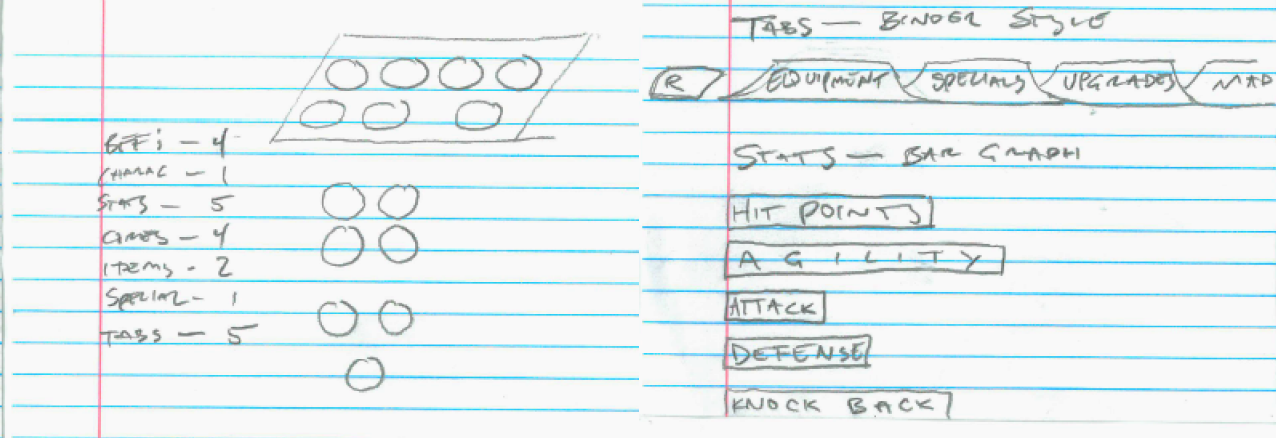 - 4
CHARAC - 1
STATS - 5
- 4
ITEMS - 2
SPECIAL - 1
TABS - 5
TABS - BINDER STYLE
R EQUIPMENT SPECIALS UPGRADES MAP
STATS - BAR GRAPH
HIT POINTS
AGILITY
ATTACK
DEFENSE
KNOCK BACK